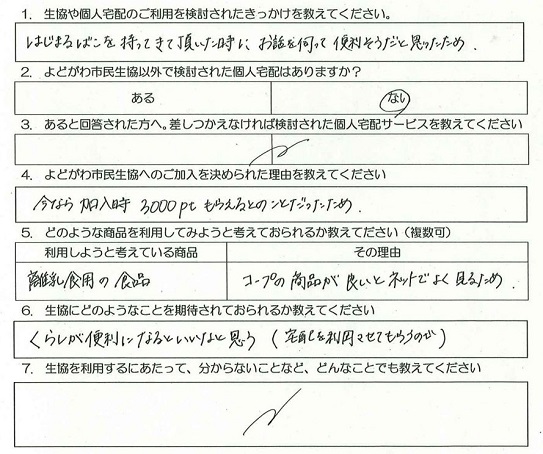 1. 生協や個人宅配のご利用を検討されたきっかけを教えてください。
はじまるばこを持ってきて頂いた時に、お話を伺って便利そうだと思ったため.
2. よどがわ市民生協以外で検討された個人宅配はありますか？
ある ない
3. あると回答された方へ。差しつかえなければ検討された個人宅配サービスを教えてください
4. よどがわ市民生協へのご加入を決められた理由を教えてください
今なら加入時 3000pt もらえるとのことだったため.
5. どのような商品を利用してみようと考えておられるか教えてださい（複数可）
利用しようと考えている商品 その理由
離乳食用の食品 コープの商品が良いとネットでよく見るため.
6. 生協にどのようなことを期待されておられるか教えてください
くらしが便利になるといいなと思う（宅配を利用させてもらうので）
7. 生協を利用するにあたって、分からないことなど、どんなことでも教えてください